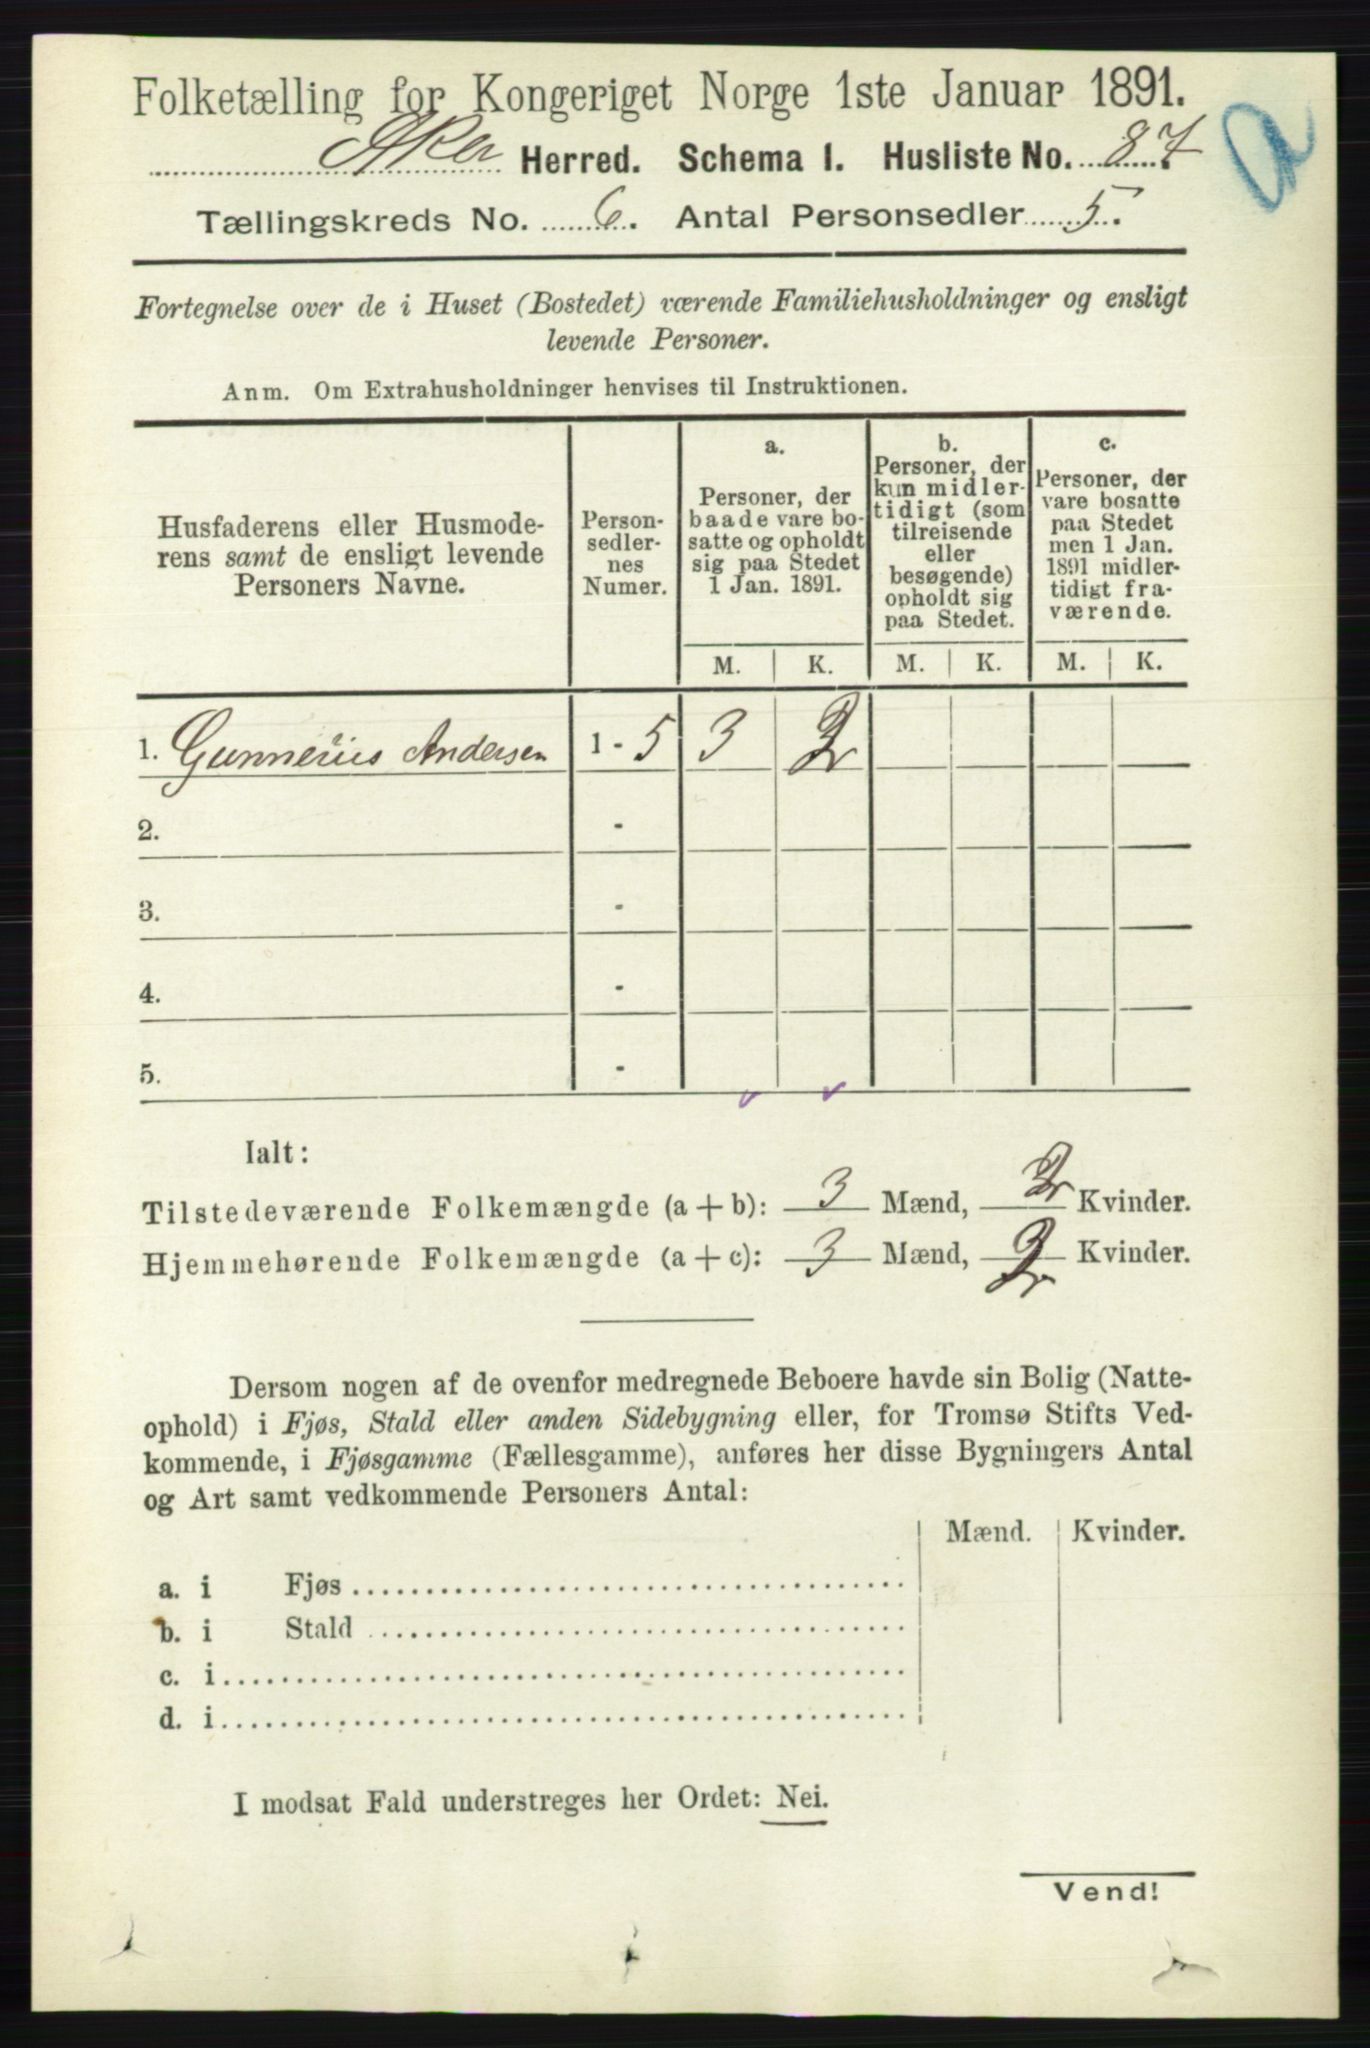 Folketælling for Kongeriget Norge 1ste Januar 1891.
Aker Herred. Schema I. Husliste No. 87.
Tællingskreds No. 6. Antal Personsedler 5.
Fortegnelse over de i Huset (Bostedet) værende Familiehusholdninger og ensligt
levende Personer.
Anm. Om Extrahusholdninger henvises til Instruktionen.
Husfaderens eller Husmode-
rens samt de ensligt levende
Personers Navne.
Person-
sedler-
nes
Numer.
a.
Personer, der
baade vare bo-
satte og opholdt
sig paa Stedet
1 Jan. 1891.
b.
Personer, der
kun midler-
tidigt (som
tilreisende
eller
besøgende)
opholdt sig
paa Stedet.
c.
Personer, der
vare bosatte
paa Stedet
men 1 Jan.
1891 midler-
tidigt fra-
værende.
M. K. M. K. M. K.
1. Gunnerius Andersen 1 - 5 3 2
2. -
3. -
4. -
5. -
Ialt:
Tilstedeværende Folkemængde (a + b): 3 Mænd, 2 Kvinder.
Hjemmehørende Folkemængde (a + c): 3 Mænd, 2 Kvinder.
Dersom nogen af de ovenfor medregnede Beboere havde sin Bolig (Natte-
ophold) i Fjøs, Stald eller anden Sidebygning eller, for Tromsø Stifts Ved-
kommende, i Fjøsgamme (Fællesgamme), anføres her disse Bygningers Antal
og Art samt vedkommende Personers Antal:
Mænd. Kvinder.
a. i Fjøs
b. i Stald
c. i
d. i
I modsat Fald understreges her Ordet: Nei.
Vend!